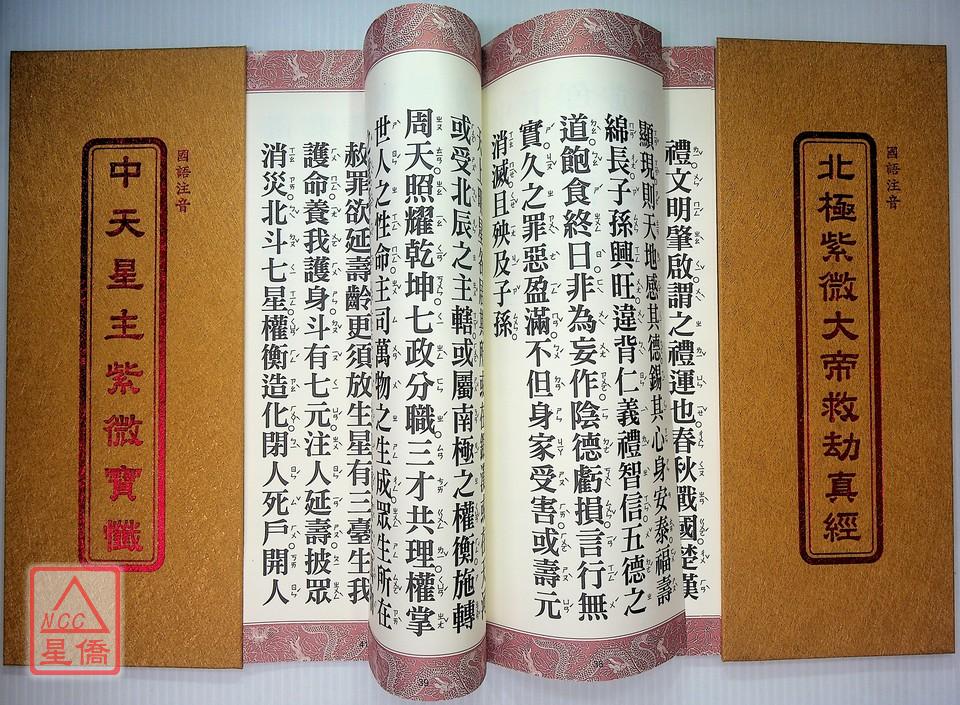 國語注音
北極紫微大帝救劫真經
禮文明肇啟謂之禮運也春秋戰國楚漢
顯現則天地感其德錫其心身安泰福壽
綿長子孫興旺違背仁義禮智信五德之
道飽食終日非為妄作陰德虧損言行無
實久之罪惡盈滿不但身家受害或壽元
消滅且殃及子孫
38
或受北辰之主轄或屬南極之權衡施轉
周天照耀乾坤七政分職三才共理權掌
世人之性命主司萬物之生成眾生所在
39
赦罪欲延壽齡更須放生星有三臺生我
護命養我護身斗有七元注人延壽披眾
消災北斗七星權衡造化閉人死戶開人
國語注音
中天星主紫微寶懺
NCC
星僑